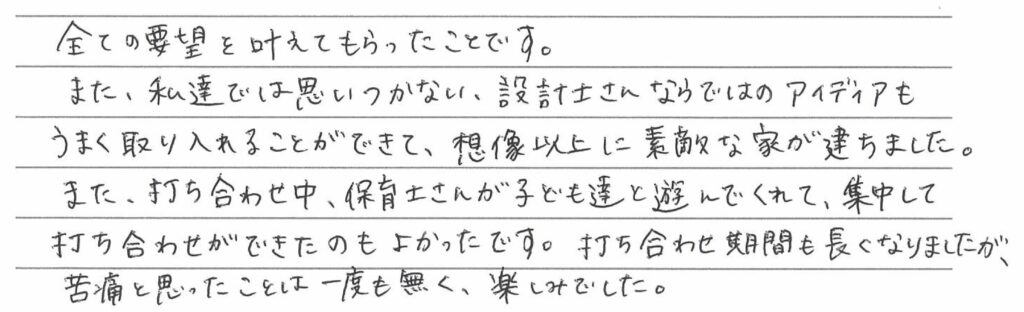 全ての要望を叶えてもらったことです。
また、私達では思いつかない、設計士さんならではのアイディアも
うまく取り入れることができて、想像以上に素敵な家が建ちました。
また、打ち合わせ中、保育士さんが子ども達と遊んでくれて、集中して
打ち合わせができたのもよかったです。打ち合わせ期間も長くなりましたが、
苦痛と思ったことは一度も無く、楽しみでした。